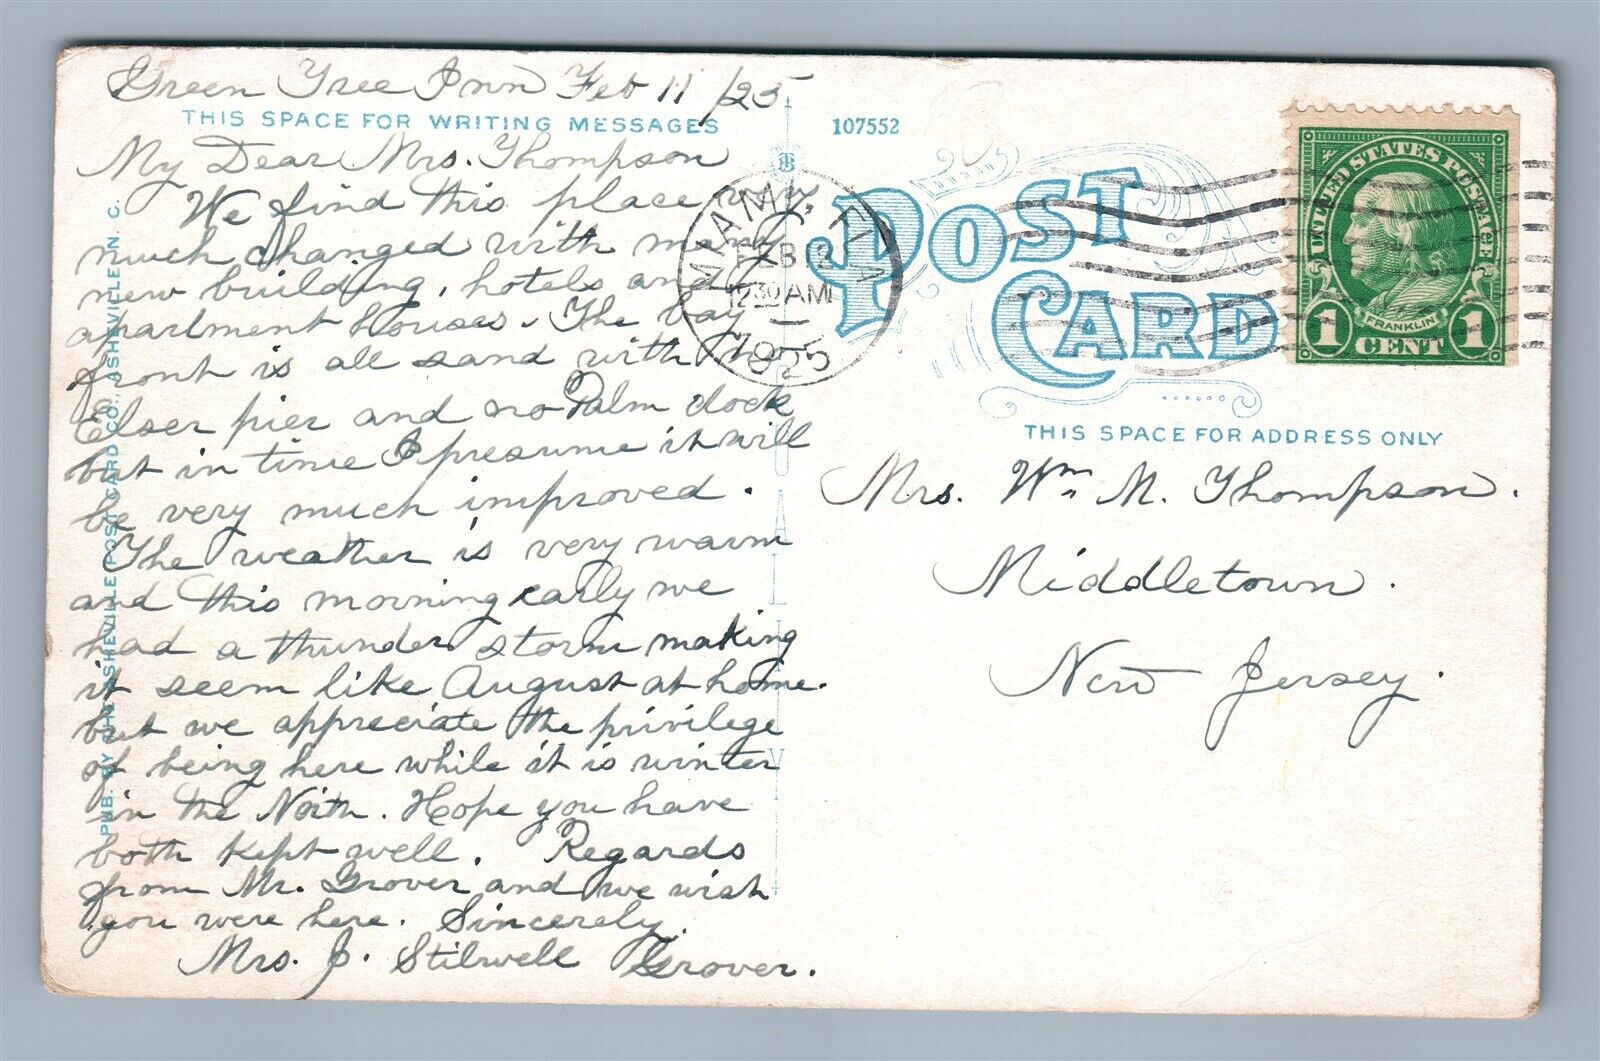 Green Tree Inn Feb 11/25
THIS SPACE FOR WRITING MESSAGES
My Dear Mrs. Thompson
We find this place very
much changed with many
new building, hotels and
apartment houses. The bay
front is all sand with no
Elser pier and no Palm dock
but in time I presume it will
be very much improved.
The weather is very warm
and this morning early we
had a thunder storm making
it seem like August at home.
but we appreciate the privilege
of being here while it is winter
in the North. Hope you have
both kept well. Regards
from Mr. Grover and we wish
you were here. Sincerely.
Mrs. J. Stilwell Grover.
PUB. BY THE ASHEVILLE POST CARD CO., ASHEVILLE, N. C.
107552
MIAMI, FLA
FEB 12
12 30 AM
1925
POST
CARD
UNITED STATES POSTAGE
FRANKLIN
1 CENT 1
THIS SPACE FOR ADDRESS ONLY
Mrs. Wm. M. Thompson.
Middletown.
New Jersey.